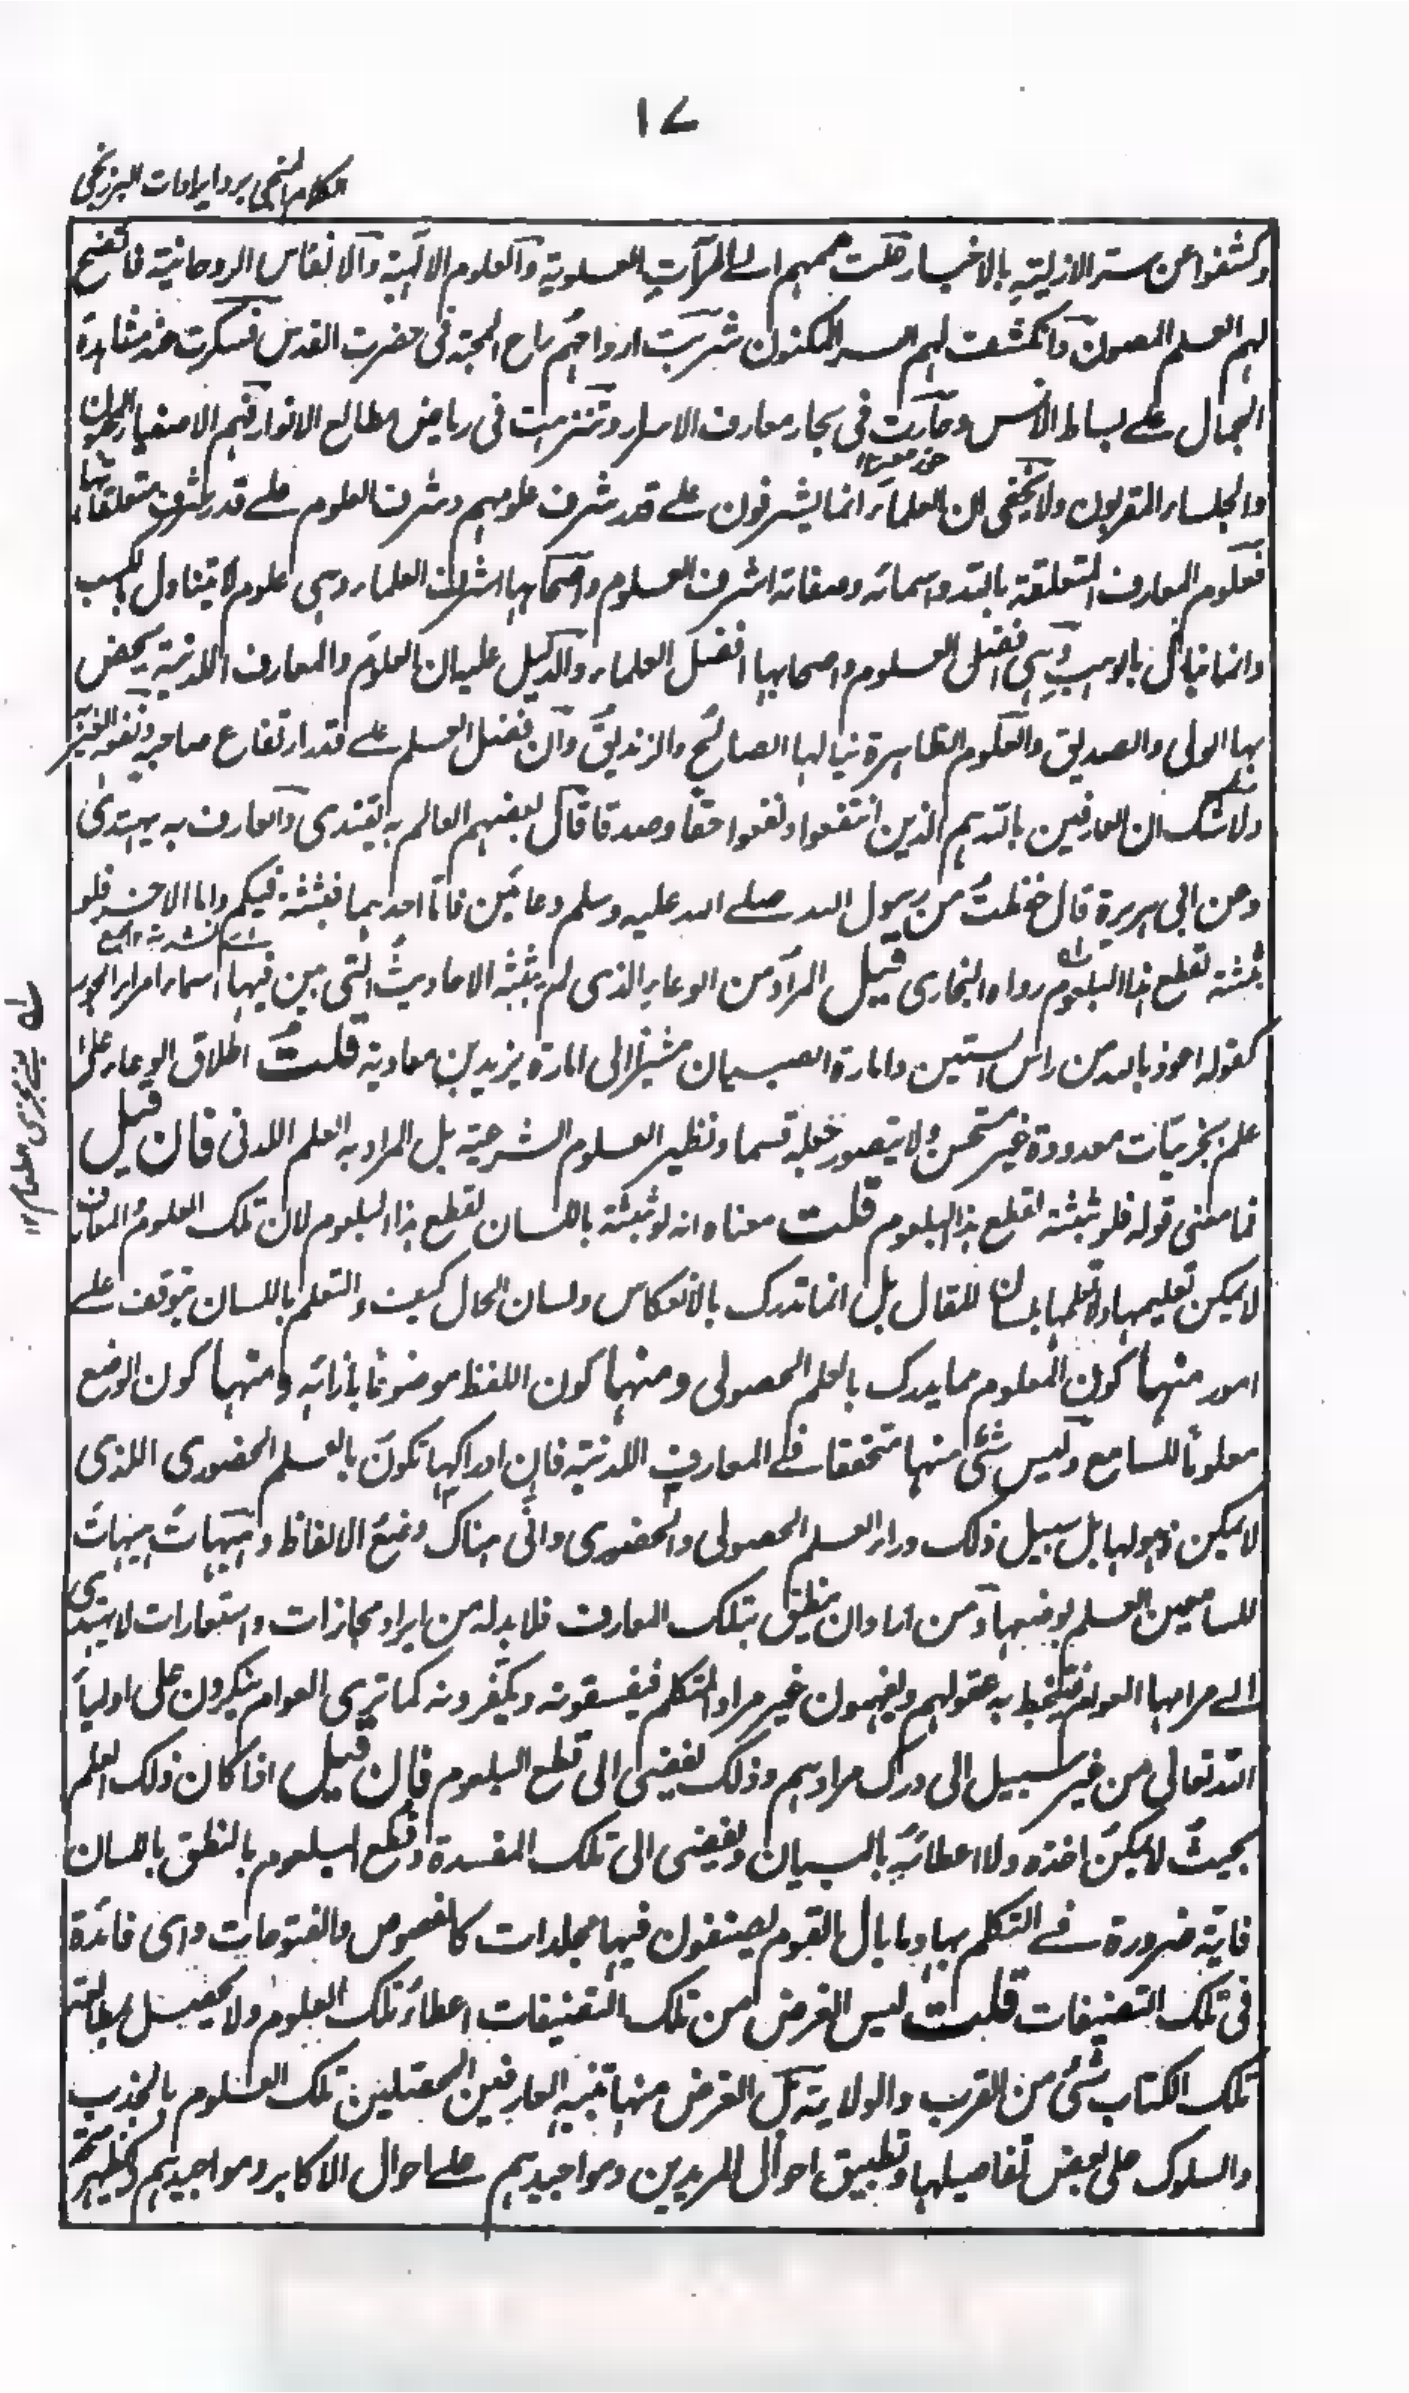 ١٧
الكلام المنجي برد ايرادات البرزنجي
وكشفوا عن ستر الازلية بالاخبار رحلت هممهم الى المرآت العلوية والعلوم الالٓهية والانفاس الروحانية فاتضح
لهم العلم المصون وانكشفت لهم السر المكنون شربت ارواحهم راح المحبة فى حضرت القدس فسكرت عند مشاهدة
الجمال على بساط الانس وحارت فى بحار معارف الاسرار وتنزهت فى رياض مطالع الانوار فهم الاصفياء
والجلساء المقربون ولا يخفى ان العلماء انما يشرفون على قدر شرف علومهم وشرف العلوم على قدر شرف متعلقاتها
فعلوم المعارف المتعلقة بالله واسمائه وصفاته اشرف العلوم واصحابها اشرف العلماء وهى علوم لا يتناول بالكسب
وانما ينال بالوهب وهى افضل العلوم واصحابها افضل العلماء والدليل عليه ان العلوم والمعارف اللدنية يخص
بها الولى والصديق والعلوم الظاهرة ينالها الصالح والزنديق وان فضل العلم على قدر ارتفاع صاحبه ونفعه لغيره
ولا شك ان العارفين بالله هم الذين انتفعوا ونفعوا حقا وصدقا قال بعضهم العالم به يقتدى والعارف به يهتدى
وعن ابى هريرة قال حفظت من رسول الله صلے الله عليه وسلم وعائين فاما احدهما فبثثته فيكم واما الاخر فلو
بثثته لقطع هذا البلعوم رواه البخارى قيل المراد من الوعاء الذى لم يبثثه الاحاديث التى بين فيها اسماء امراء الجور
كقوله اعوذ بالله من راس الستين وامارة الصبيان مشيرا الى امارة يزيد بن معاوية قلت اطلاق الوعاء على
علم بجزئيات معدودة غير مستحسن ولا يتصور جعله قسما ونظير العلوم الشرعية بل المراد به العلم اللدنى فان قيل
فما معنى قوله فلو بثثته لقطع هذا البلعوم قلت معناه انه لو بثثته باللسان لقطع هذا البلعوم لان تلك العلوم والمعارف
لا يمكن تعليمها وتعلمها بلسان المقال بل انما تدرك بالانعكاس ولسان الحال كيف والتعلم باللسان يتوقف على
امور منها كون المعلوم مما يدرك بالعلم الحصولى ومنها كون اللفظ موضوعا بازائه ومنها كون الوضع
معلوما للسامع وليس شئ منها متحققا فى المعارف اللدنية فان ادراكها تكون بالعلم الحضورى اللذى
لا يمكن ذهولها بل سبيل ذلك وراء العلم الحصولى والحضورى وانى هناك وضع الالفاظ وهيهات هيهات
للسامعين العلم بوضعها ومن اراد ان ينطق بتلك المعارف فلا بد له من ايراد مجازات واستعارات لا يهتدى
الى مرامها العوام فيتخبط به عقولهم ويفهمون غير مراد المتكلم فيفسقونه ويكفرونه كما ترى العوام ينكرون على اولياء
الله تعالى من غير سبيل الى درك مرادهم وذلك يفضى الى قطع البلعوم فان قيل اذا كان ذلك العلم
بحيث لا يمكن اخذه ولا اعطائه بالبيان ويفضى الى تلك المفسدة وقطع البلعوم بالنطق باللسان
فاية ضرورة فى التكلم بها وما بال القوم يصنفون فيها مجلدات كالفصوص والفتوحات واى فائدة
فى تلك التصنيفات قلت ليس الغرض من تلك التصنيفات اعطاء تلك العلوم ولا يحصل بمطالعة
تلك الكتاب شئ من القرب والولاية بل الغرض منها تنبيه العارفين المحصلين تلك العلوم بالجذب
والسلوك على بعض تفاصيلها وتطبيق احوال المريدين ومواجيدهم على احوال الاكابر ومواجيدهم